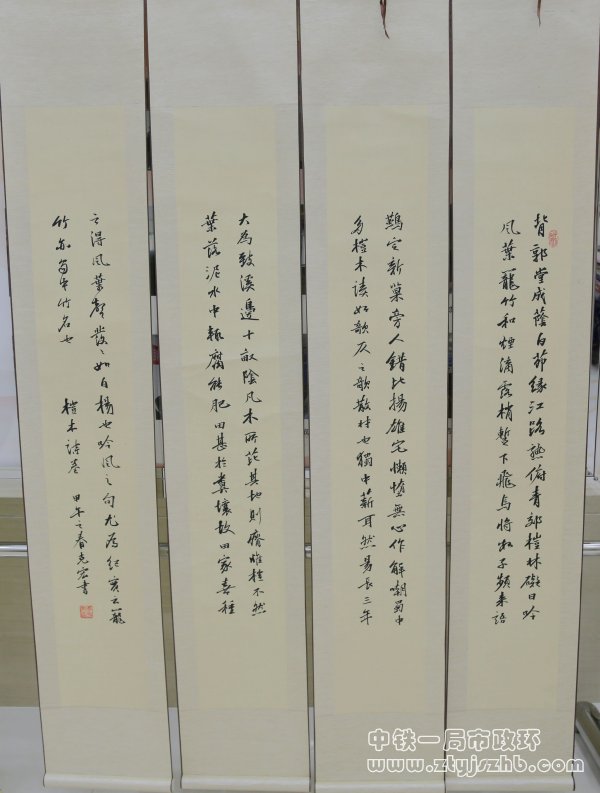 背郭堂成蔭白茆緣江路熟俯青郊榿林礙日吟
風葉籠竹和煙滴露梢暫下飛烏將數子頻來語
鷰定新巢旁人錯比揚雄宅懶惰無心作解嘲蜀中
多榿木讀如欹仄之欹散材也獨中薪耳然易長三年
大為致溪邊十畝陰凡木所芘其地則瘠唯榿不然
葉落泥水中輒腐能肥田甚於糞壤故田家喜種
之得風葉聲發〻如白楊也吟風之句尤為紀實云籠
竹亦蜀中竹名也
榿木詩卷 甲午之春克宏書
中铁一局市政环
www.ztyjszhb.com